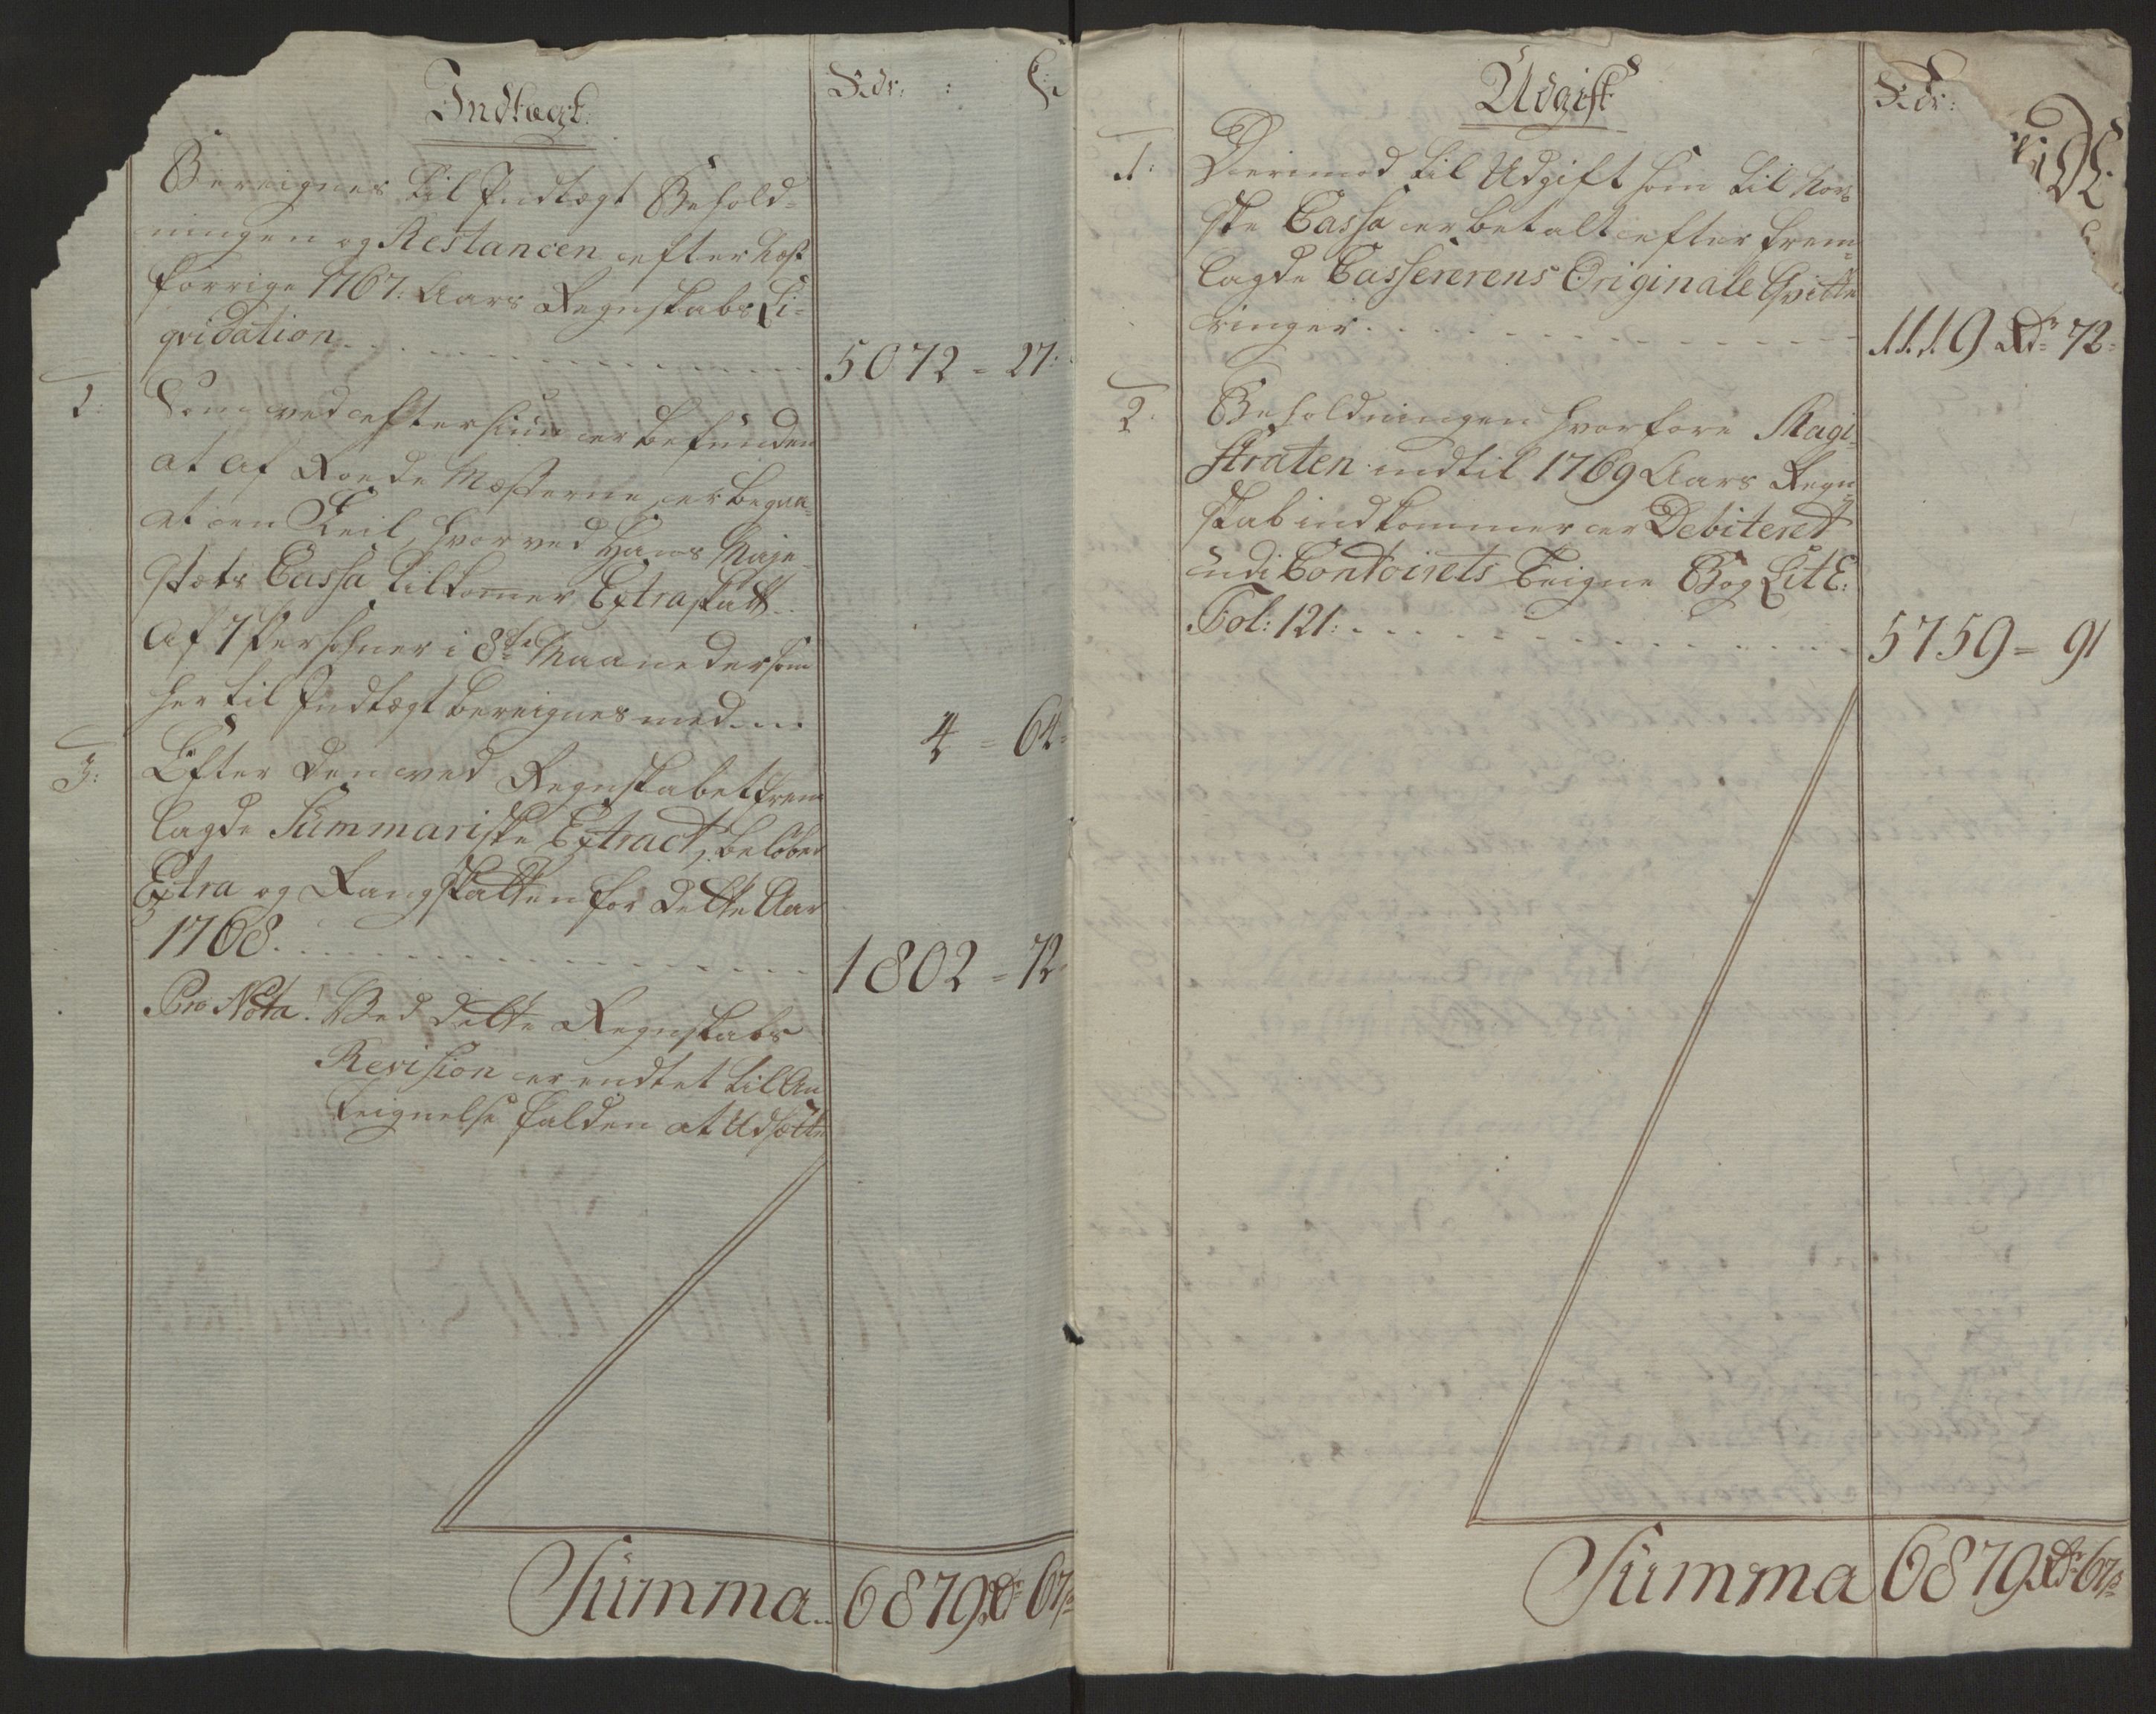 Indtægt:
Rdr: : ſ:
Bereignes til Indtægt Behold-
ningen og Restancen efter Næst
forrige 1767: Aars Regnskabs Li-
qvidation 5072 - 27:
2: Som ved eftersiun er befunden
at af Roede Mæsterne, er begaa-
et en Feil, hvorved Hans Maje-
stæts Cassa tilkomer Extraskatt
Af 7 Persohner i 8te Maaneder som
her til Indtægt bereignes med 4 - 64:
3: Efter den ved Regnskabet frem
lagde Summariske Extract, beløber
Extra og Rangskatten for dette Aar
1768 1802 - 72
Pro Nota! Ved dette Regnskabs
Revision er endtet til An
teignelse falden at Udsætte
Summa 6879 Rdr 67ſ
Udgift
Rdr:
1: Derimod til Udgift som til Kors
ske Cassa er betalt efter frem-
lagde Cassererens Originale Qvitte
ringer 1119 Rdr 72-
2: Beholdningen hvorfore Magi-
straten indtil 1769 Aars Regn-
skab indkommer er Debiteret
udi Contoirets Teigne Bog Lit E:
Fol: 121: 5759 - 91
Summa 6879 Rdr 67ſ